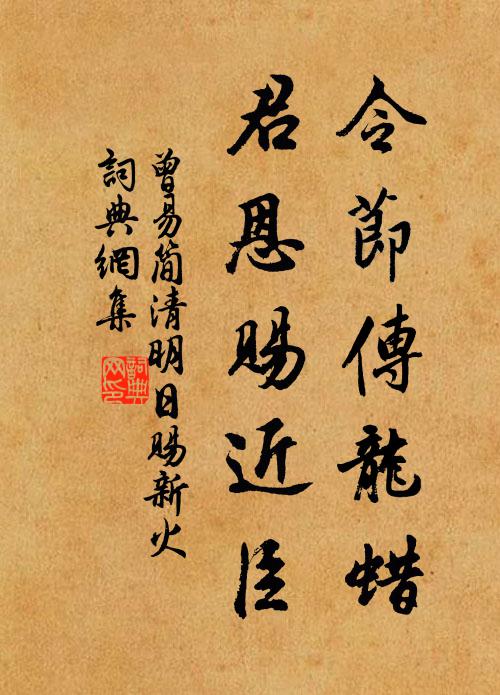 令節傳龍蜡
君恩賜近臣
曾易简清明日賜新火
詞典網集
詞典网印